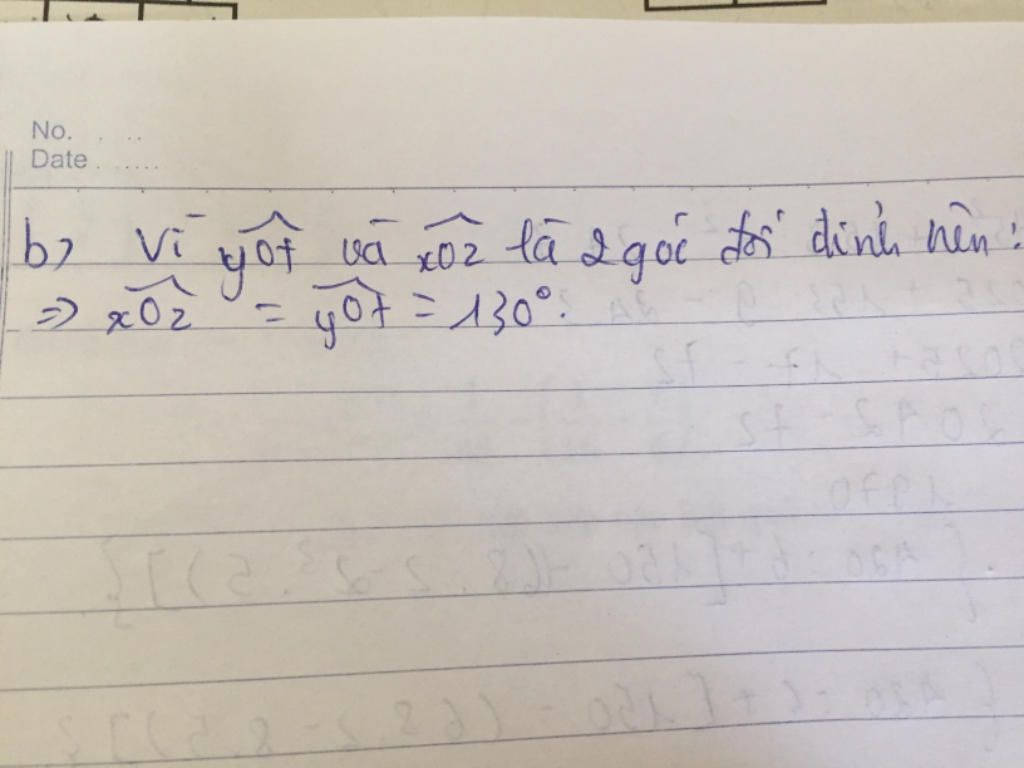 No. . . .
Date . . . . . . .
b) Vì $\widehat{yOt}$ và $\widehat{xOz}$ là 2 góc đối đỉnh nên:
=> $\widehat{xOz}$ = $\widehat{yOt}$ = 130°.